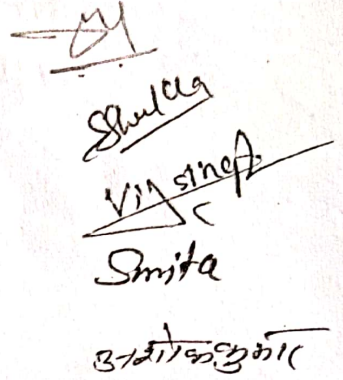 Shukla
Vijsingh
Smita
अशोक कुमार